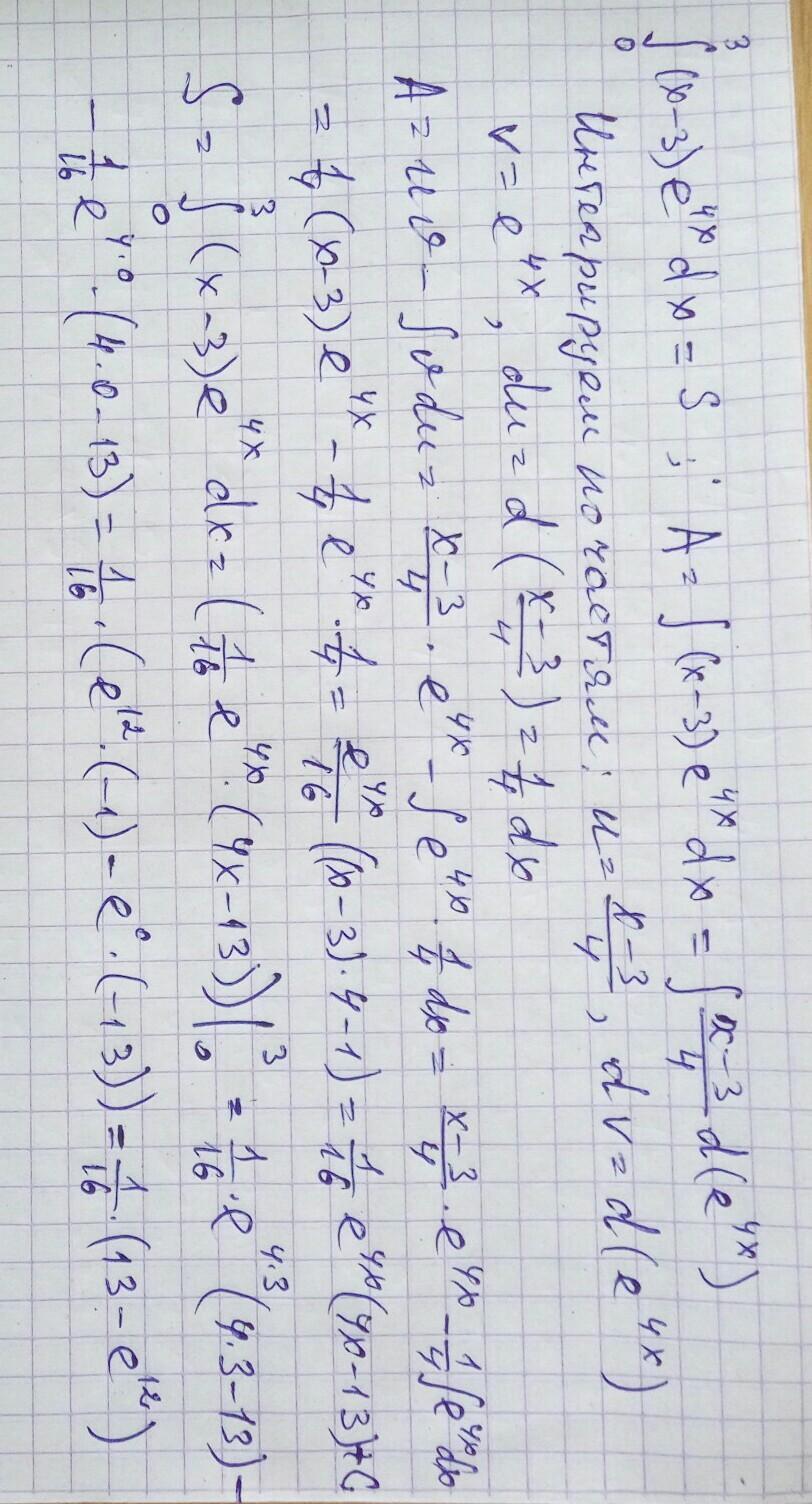 ∫₀³ (x-3)e^{4x} dx = S ; A = ∫(x-3)e^{4x} dx = ∫ \frac{x-3}{4} d(e^{4x})
Интегрируем по частям: u = \frac{x-3}{4}, dv = d(e^{4x})
v = e^{4x}, du = d(\frac{x-3}{4}) = \frac{1}{4} dx
A = uv - ∫v du = \frac{x-3}{4} · e^{4x} - ∫e^{4x} · \frac{1}{4} dx = \frac{x-3}{4} · e^{4x} - \frac{1}{4}∫e^{4x} dx
= \frac{1}{4}(x-3)e^{4x} - \frac{1}{4} e^{4x} · \frac{1}{4} = \frac{e^{4x}}{16}((x-3)·4-1) = \frac{1}{16} e^{4x}(4x-13)+C
S = ∫₀³ (x-3)e^{4x} dx = (\frac{1}{16} e^{4x} · (4x-13))|₀³ = \frac{1}{16} · e^{4·3} (4·3-13) -
- \frac{1}{16} e^{4·0} · (4·0-13) = \frac{1}{16} · (e^{12} · (-1) - e^{0} · (-13)) = \frac{1}{16} · (13-e^{12})